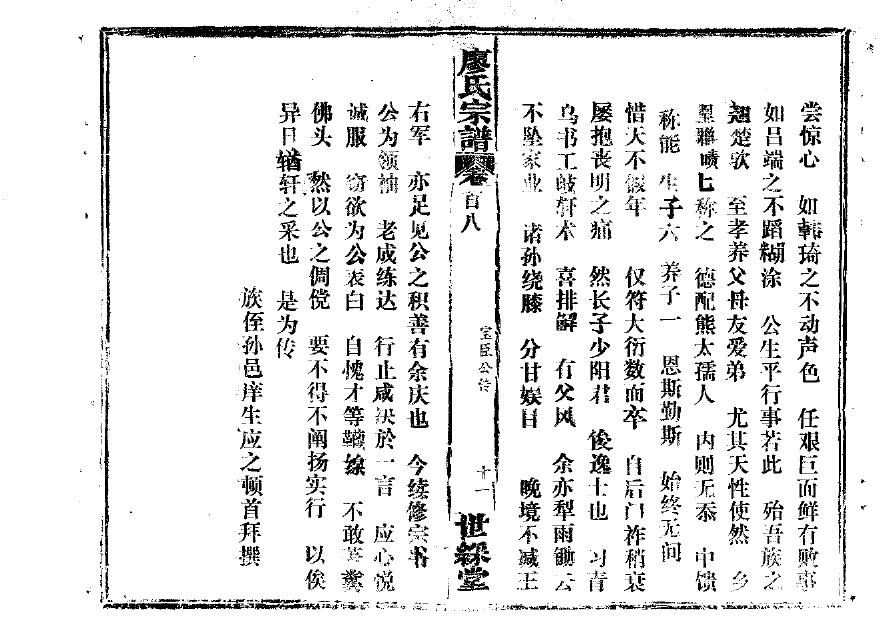 尝惊心 如韩琦之不动声色 任艰巨而鲜有败事
如吕端之不蹈糊涂 公生平行事若此 殆吾族之
翘楚欤 至孝养父母友爱弟 尤其天性使然 乡
里 称之 德配熊太孺人 内则无忝 中馈
称能 生子六 养子一 恩斯勤斯 始终无间
惜天不假年 仅符大衍数而卒 自后门祚稍衰
屡抱丧明之痛 然长子少阳君 俊逸士也 习青
乌书工岐轩术 喜排解 有父风 余亦犁雨锄云
不坠家业 诸孙绕膝 分甘娱目 晚境不减王
廖氏宗譜
卷
首八
宝臣公传
十一
世綵堂
右军 亦足见公之积善有余庆也 今续修宗书
公为领袖 老成练达 行止咸决於一言 应心悦
诚服 窃欲为公表白 自愧才等 线 不敢 粪
佛头 然以公之倜傥 要不得不阐扬实行 以俟
异日輶轩之采也 是为传
族侄孙邑庠生应之顿首拜撰